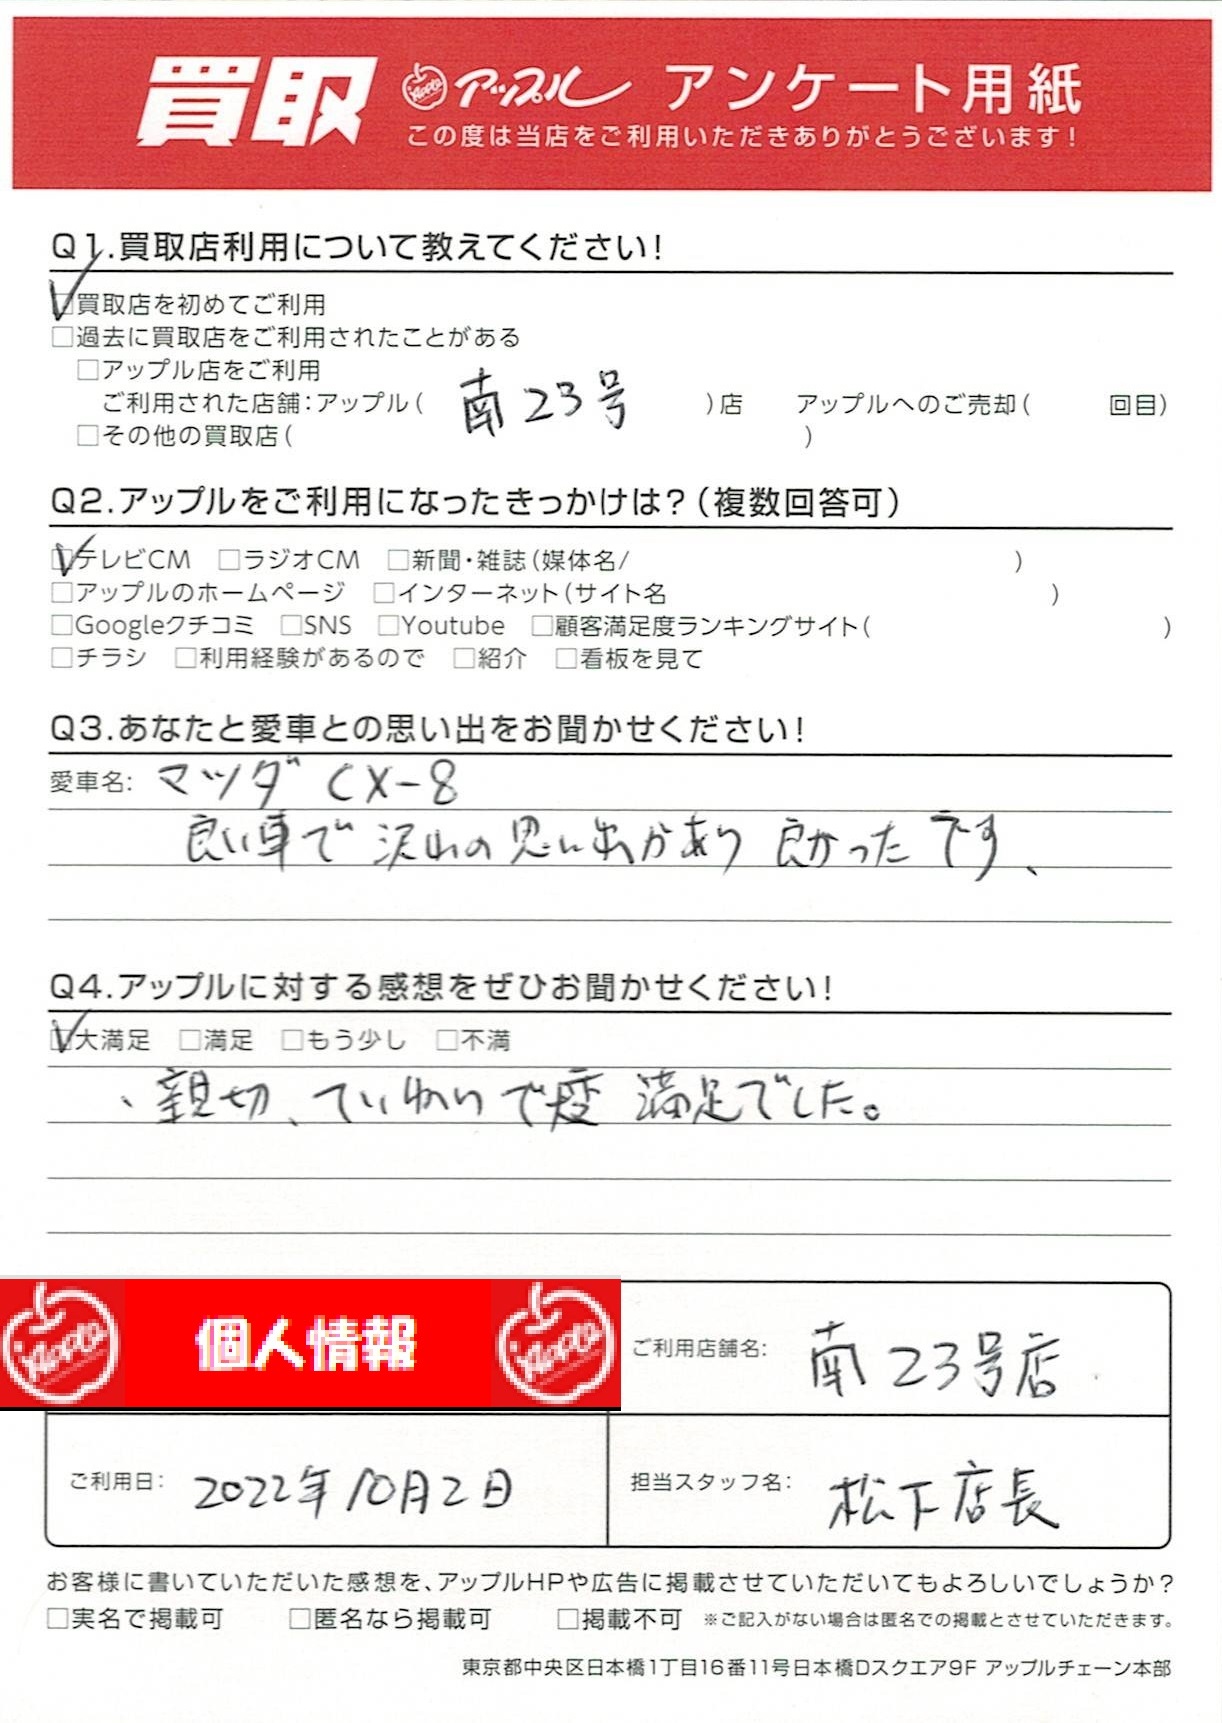 買取 Apple アップル アンケート用紙
この度は当店をご利用いただきありがとうございます!
Q1.買取店利用について教えてください!
☑買取店を初めてご利用
□過去に買取店をご利用されたことがある
□アップル店をご利用
ご利用された店舗:アップル( 南23号 )店 アップルへのご売却( 回目)
□その他の買取店( )
Q2.アップルをご利用になったきっかけは?(複数回答可)
☑テレビCM □ラジオCM □新聞・雑誌(媒体名/ )
□アップルのホームページ □インターネット(サイト名 )
□Googleクチコミ □SNS □Youtube □顧客満足度ランキングサイト( )
□チラシ □利用経験があるので □紹介 □看板を見て
Q3.あなたと愛車との思い出をお聞かせください!
愛車名: マツダ CX-8
良い車で 沢山の思い出があり 良かったです、
Q4.アップルに対する感想をぜひお聞かせください!
☑大満足 □満足 □もう少し □不満
、親切、ていねいで 満足でした。
Apple 個人情報 Apple
ご利用店舗名: 南23号店
ご利用日: 2022年10月2日 担当スタッフ名: 松下店長
お客様に書いていただいた感想を、アップルHPや広告に掲載させていただいてもよろしいでしょうか?
□実名で掲載可 □匿名なら掲載可 □掲載不可 ※ご記入がない場合は匿名での掲載とさせていただきます。
東京都中央区日本橋1丁目16番11号日本橋Dスクエア9F アップルチェーン本部